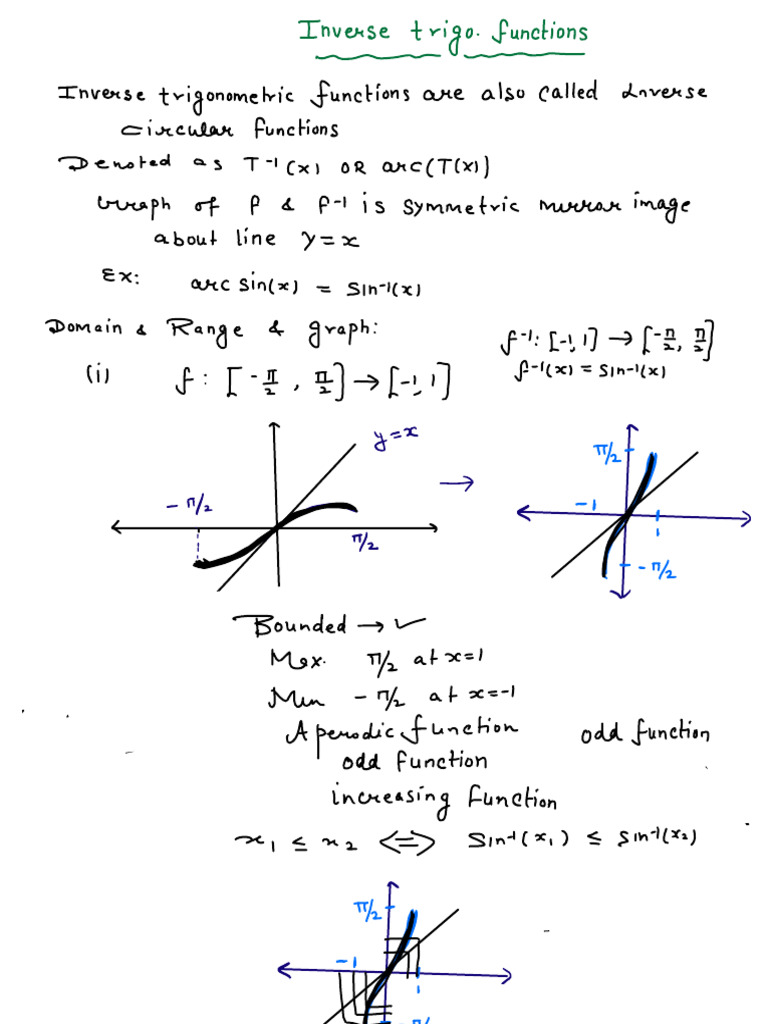 Inverse trigo. functions
Inverse trigonometric functions are also called Inverse
circular functions
Denoted as T⁻¹(x) OR arc(T(x))
Graph of f & f⁻¹ is symmetric mirror image
about line y=x
Ex: arc sin(x) = sin⁻¹(x)
Domain & Range & graph:
f⁻¹: [-1, 1] → [-π/2, π/2]
(i) f : [-π/2, π/2] → [-1, 1]
f⁻¹(x) = sin⁻¹(x)
y=x
π/2
-π/2
-1
1
π/2
-π/2
Bounded → ✓
Max. π/2 at x=1
Min -π/2 at x=-1
Aperodic function odd function
odd function
increasing function
x₁ ≤ x₂ ⟺ sin⁻¹(x₁) ≤ sin⁻¹(x₂)
π/2
-1
1